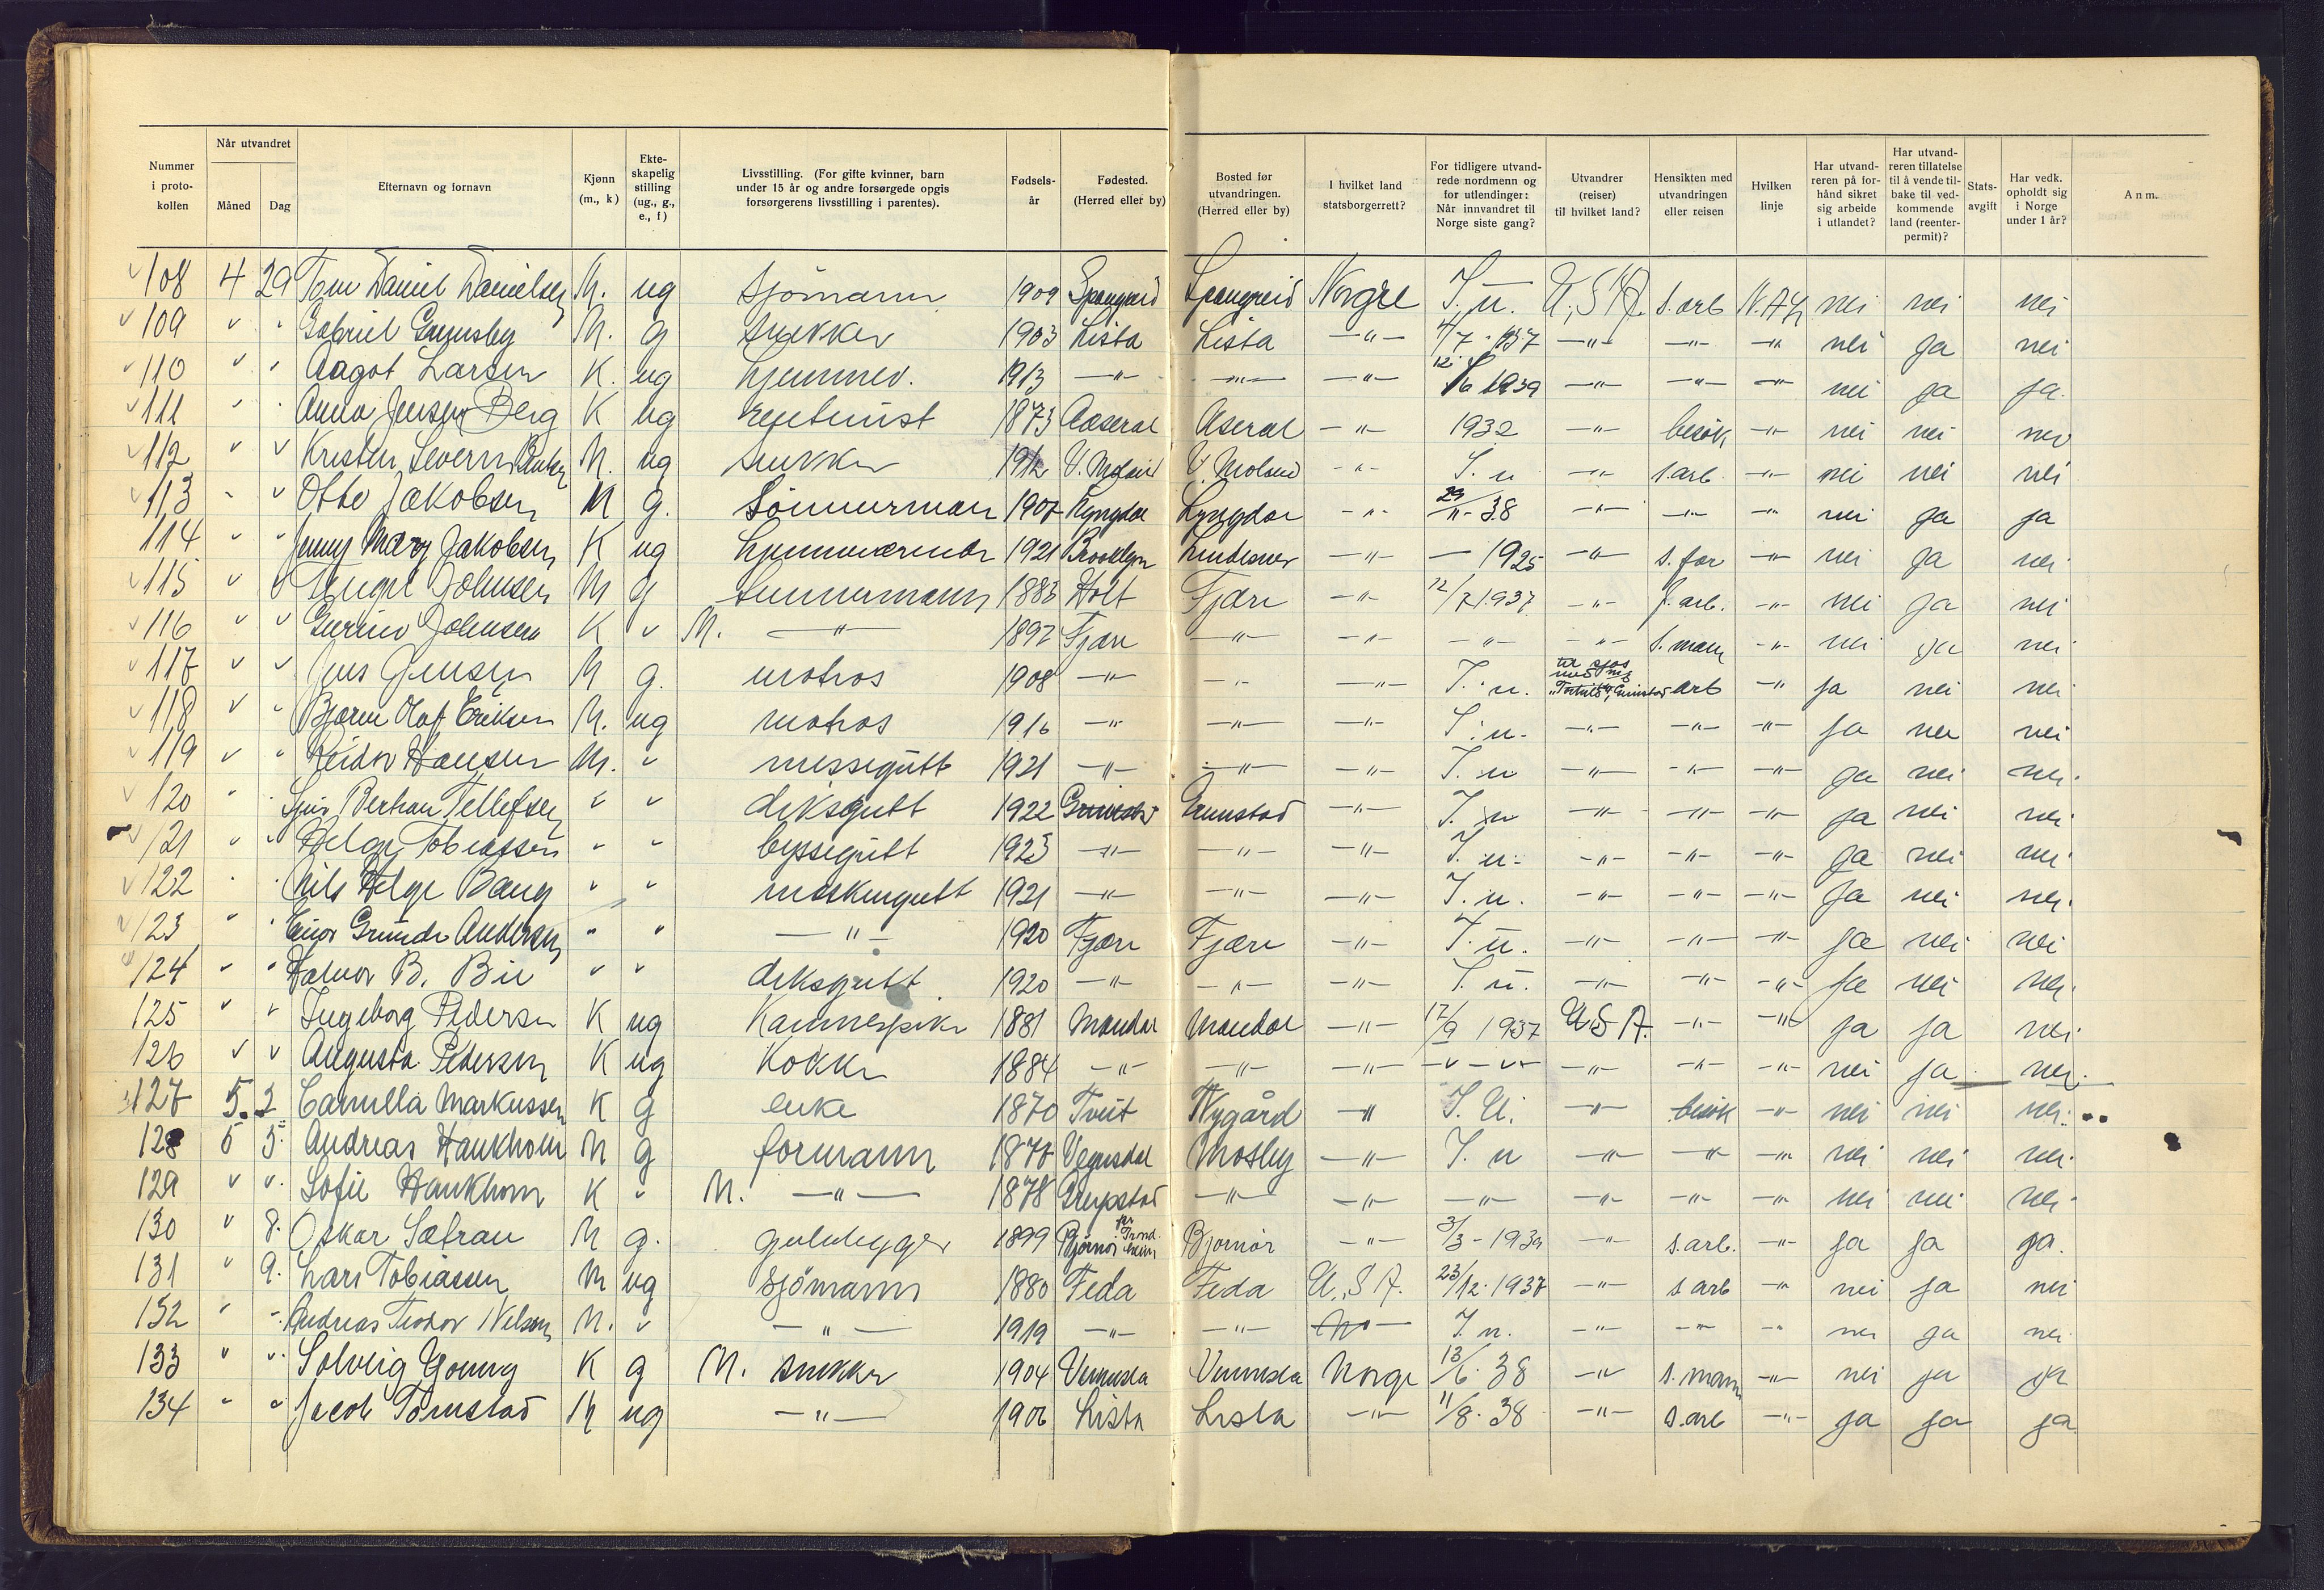 Nummer i protokollen | Når utvandret Måned | Dag | Efternavn og fornavn | Kjønn (m., k) | Ekteskapelig stilling (ug., g., e., f) | Livsstilling. (For gifte kvinner, barn under 15 år og andre forsørgede opgis forsørgerens livsstilling i parentes). | Fødselsår | Fødested. (Herred eller by) | Bosted før utvandringen. (Herred eller by) | I hvilket land statsborgerrett? | For tidligere utvandrede nordmenn og for utlendinger: Når innvandret til Norge siste gang? | Utvandrer (reiser) til hvilket land? | Hensikten med utvandringen eller reisen | Hvilken linje | Har utvandreren på forhånd sikret sig arbeide i utlandet? | Har utvandreren tillatelse til å vende tilbake til vedkommende land (reenterpermit)? | Statsavgift | Har vedk. opholdt sig i Norge under 1 år? | Anm.
108 4 29 Tom Daniel Danielsen M. ug Sjömann 1909 Spangreid Spangreid Norge I. u. U.S.A. s. arb N.A.L nei nei nei
109 " " Gabriel M. g snekker 1903 Lista Lista —"— 4/7 - 1937 —"— —"— —"— nei ja nei
110 " " Aagot Larsen K. ug hjemmev. 1913 —"— —"— —"— 12/6 1939 —"— —"— —"— nei ja ja.
111 " " Anna Jensen Berg K ug 1873 Aaseral Aseral —"— 1932 —"— besök —"— nei nei nei
112 " " Kristen Severin M. ug snekker 1912 V. Moland V. Moland —"— I. u —"— s. arb. —"— nei nei nei
113 " " Otto Jakobsen M g. tömmerman 1907 Lyngdal Lyngdal —"— 29/11 - 38 —"— —"— —"— nei ja ja
114 " " Jenny Mary Jakobsen K ug hjemmeværende 1921 Brooklyn Lindesnes —"— — 1925 —"— s. far —"— nei ja nei
115 " " Johnsen M g tømmermann 1883 Holt Fjære —"— 12/7 1937 —"— s. arb. —"— nei ja nei
116 " " Johnsen K " M. —"— 1897 Fjære —"— —"— —"— —"— s. mann —"— nei ja nei
117 " " Jens Jensen M g. matros 1908 —"— —"— —"— I. u. til sjøs med M/S "Torhild", Grimstad arb —"— ja nei nei
118 " " Bjarne Olaf Eriksen M. ug matros 1916 —"— —"— —"— I. u. —"— —"— —"— ja nei nei
119 " " Reidar Hansen M. " messegutt 1921 —"— —"— —"— I. u —"— —"— —"— ja nei nei.
120 " " Bertran Tellefsen " " deksgutt 1922 Grimstad Grimstad —"— I. u —"— —"— —"— ja nei nei
121 " " Helge Tobiassen " " byssegutt 1923 —"— —"— —"— I. u. —"— —"— —"— ja nei nei.
122 " " Nils Helge Bang " " maskingutt 1921 —"— —"— —"— I. u. —"— —"— —"— ja nei nei.
123 " " Einar Andersen " " —"— 1920 Fjære Fjære —"— I. u. —"— —"— —"— ja nei nei
124 " " Halvor B. Bie " " deksgutt 1920 —"— —"— —"— I. u. —"— —"— —"— ja nei nei.
125 " " Ingeborg Pedersen K ug Kammerpike 1881 Mandal Mandal —"— 17/9 1937 U.S.A. —"— —"— ja ja nei
126 " " Augusta Pedersen K ug Kokke 1884 —"— —"— —"— —"— —"— —"— —"— nei ja nei.
127 5. 2 Camilla Markussen K g enke 1870 Tveit Nygård —"— I. U. —"— besök —"— nei nei nei.
128 5 5. Andreas Haukhom M g formann 1878 Vegusdal Mosby —"— I. u —"— —"— —"— nei nei nei.
129 " " Sofie Haukhom K " M. —"— 1878 Greipstad —"— —"— —"— —"— —"— —"— nei nei nei.
130 " 8. Oskar Sætran M g. gulvlegger 1899 Bjørnør pr Trondheim Bjørnør —"— 3/3 - 1939 —"— s. arb. —"— ja ja ja.
131 " 9. Lars Tobiassen M ug Sjömann 1880 Feda Feda U.S.A. 23/12. 1937 —"— s arb —"— nei ja nei
132 " " Andreas Teodor Nilsen M. " —"— 1919 —"— —"— I. u. —"— —"— —"— nei ja nei
133 " " Solveig Young K g M. snekker 1904 Vennesla Vennesla Norge 13/6. 38 —"— s. mann —"— nei ja ja
134 " " Jacob Tomstad M ug —"— 1906 Lista Lista —"— 11/8. 38 —"— s. arb —"— ja ja ja